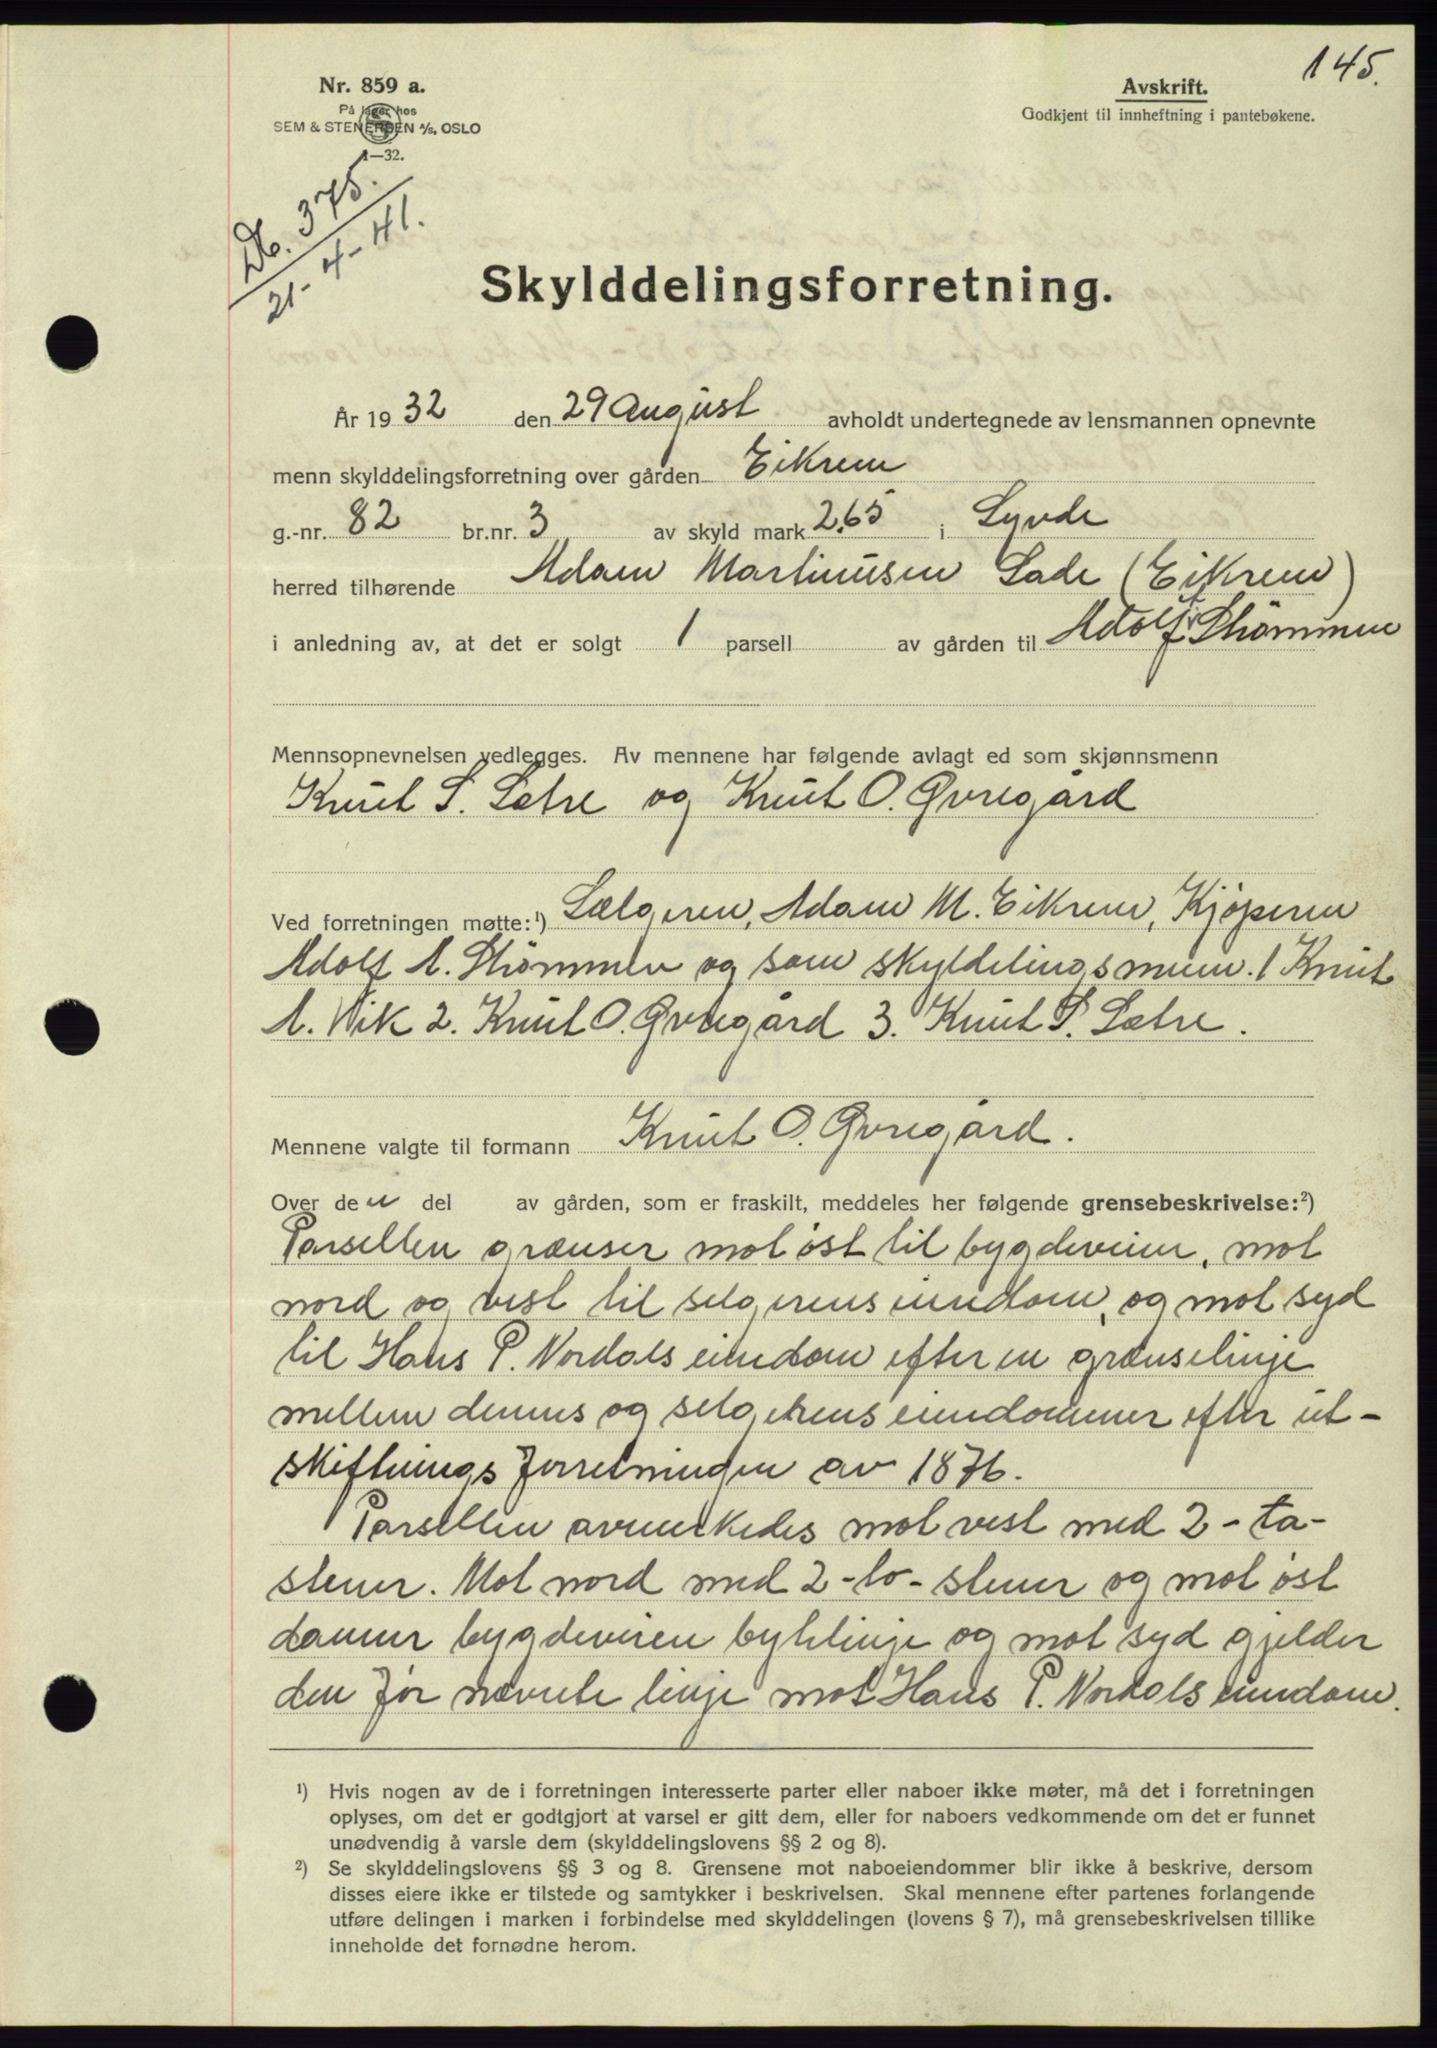 145.
Nr. 859 a.
På lager hos
SEM & STENERSEN A/S. OSLO
1—32.
Avskrift.
Godkjent til innheftning i pantebøkene.
Db. 375.
21-4-41.
Skylddelingsforretning.
År 1932 den 29 August avholdt undertegnede av lensmannen opnevnte
menn skylddelingsforretning over gården Eikrem
g.-nr. 82 br.nr. 3 av skyld mark 2.65 i Syvde
herred tilhørende Adam Martinusen Lade (Eikrem)
i anledning av, at det er solgt 1 parsell av gården til Adolf A. Strömmen
Mennsopnevnelsen vedlegges. Av mennene har følgende avlagt ed som skjønnsmenn
Knut S. Sætre og Knut O. Øvregård
Ved forretningen møtte:¹) Sælgeren, Adam M. Eikrem, Kjöperen
Adolf A. Strömmen og som skyldelingsmenn. 1 Knut
A. Vik 2. Knut O. Øvregård 3. Knut S. Sætre.
Mennene valgte til formann Knut O. Øvregård.
Over den del av gården, som er fraskilt, meddeles her følgende grensebeskrivelse:²)
Parsellen grænser mot öst til bygdeveien, mot
nord og vest til selgerens eiendom, og mot syd
til Hans P. Nordals eiendom efter en grænselinje
mellem dennes og selgerens eiendommer efter ut-
skiftnings forretningen av 1876.
Parsellen avmerkedes mot vest med 2-to-
stener. Mot nord med 2-to-stener og mot öst
danner bygdeveien bytelinje og mot syd gjelder
den før nævnte linje mot Hans P. Nordals eiendom.
¹) Hvis nogen av de i forretningen interesserte parter eller naboer ikke møter, må det i forretningen
oplyses, om det er godtgjort at varsel er gitt dem, eller for naboers vedkommende om det er funnet
unødvendig å varsle dem (skylddelingslovens §§ 2 og 8).
²) Se skylddelingslovens §§ 3 og 8. Grensene mot naboeiendommer blir ikke å beskrive, dersom
disses eiere ikke er tilstede og samtykker i beskrivelsen. Skal mennene efter partenes forlangende
utføre delingen i marken i forbindelse med skylddelingen (lovens § 7), må grensebeskrivelsen tillike
inneholde det fornødne herom.